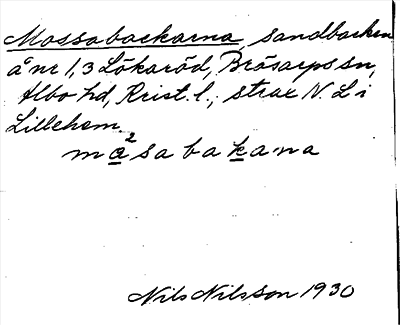 Mossabackarna, sandbacken
å nr 1,3 Lökaröd, Brösarps sn,
Albo hd, Krist. l., strax N. L i
Lillehem.
m a² s a b a k a n a
Nils Nilsson 1930